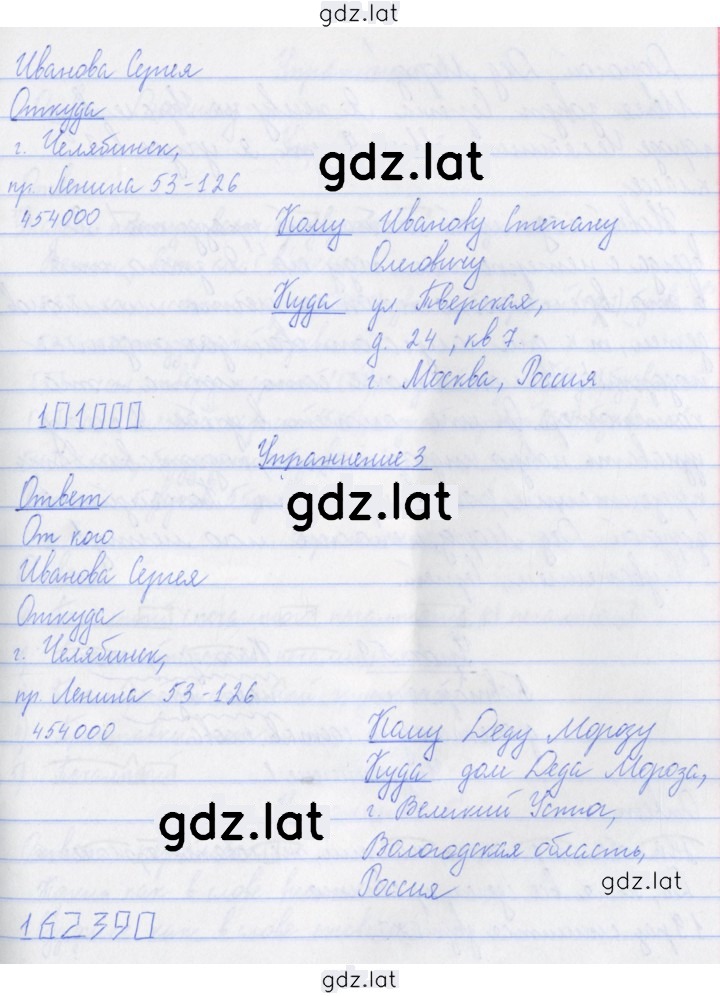 gdz.lat
Иванова Сергея
Откуда
г. Челябинск,
gdz.lat
пр. Ленина 53-126
454000
Кому Иванову Степану
Олеговичу
Куда ул Тверская,
д. 24, кв 7
г. Москва, Россия
101000
Упражнение 3
Ответ
gdz.lat
От кого
Иванова Сергея
Откуда
г. Челябинск,
пр. Ленина 53-126
454000
Кому Деду Морозу
Куда дом Деда Мороза,
г. Великий Устюг,
gdz.lat
Вологодская область,
Россия
gdz.lat
162390
gdz.lat